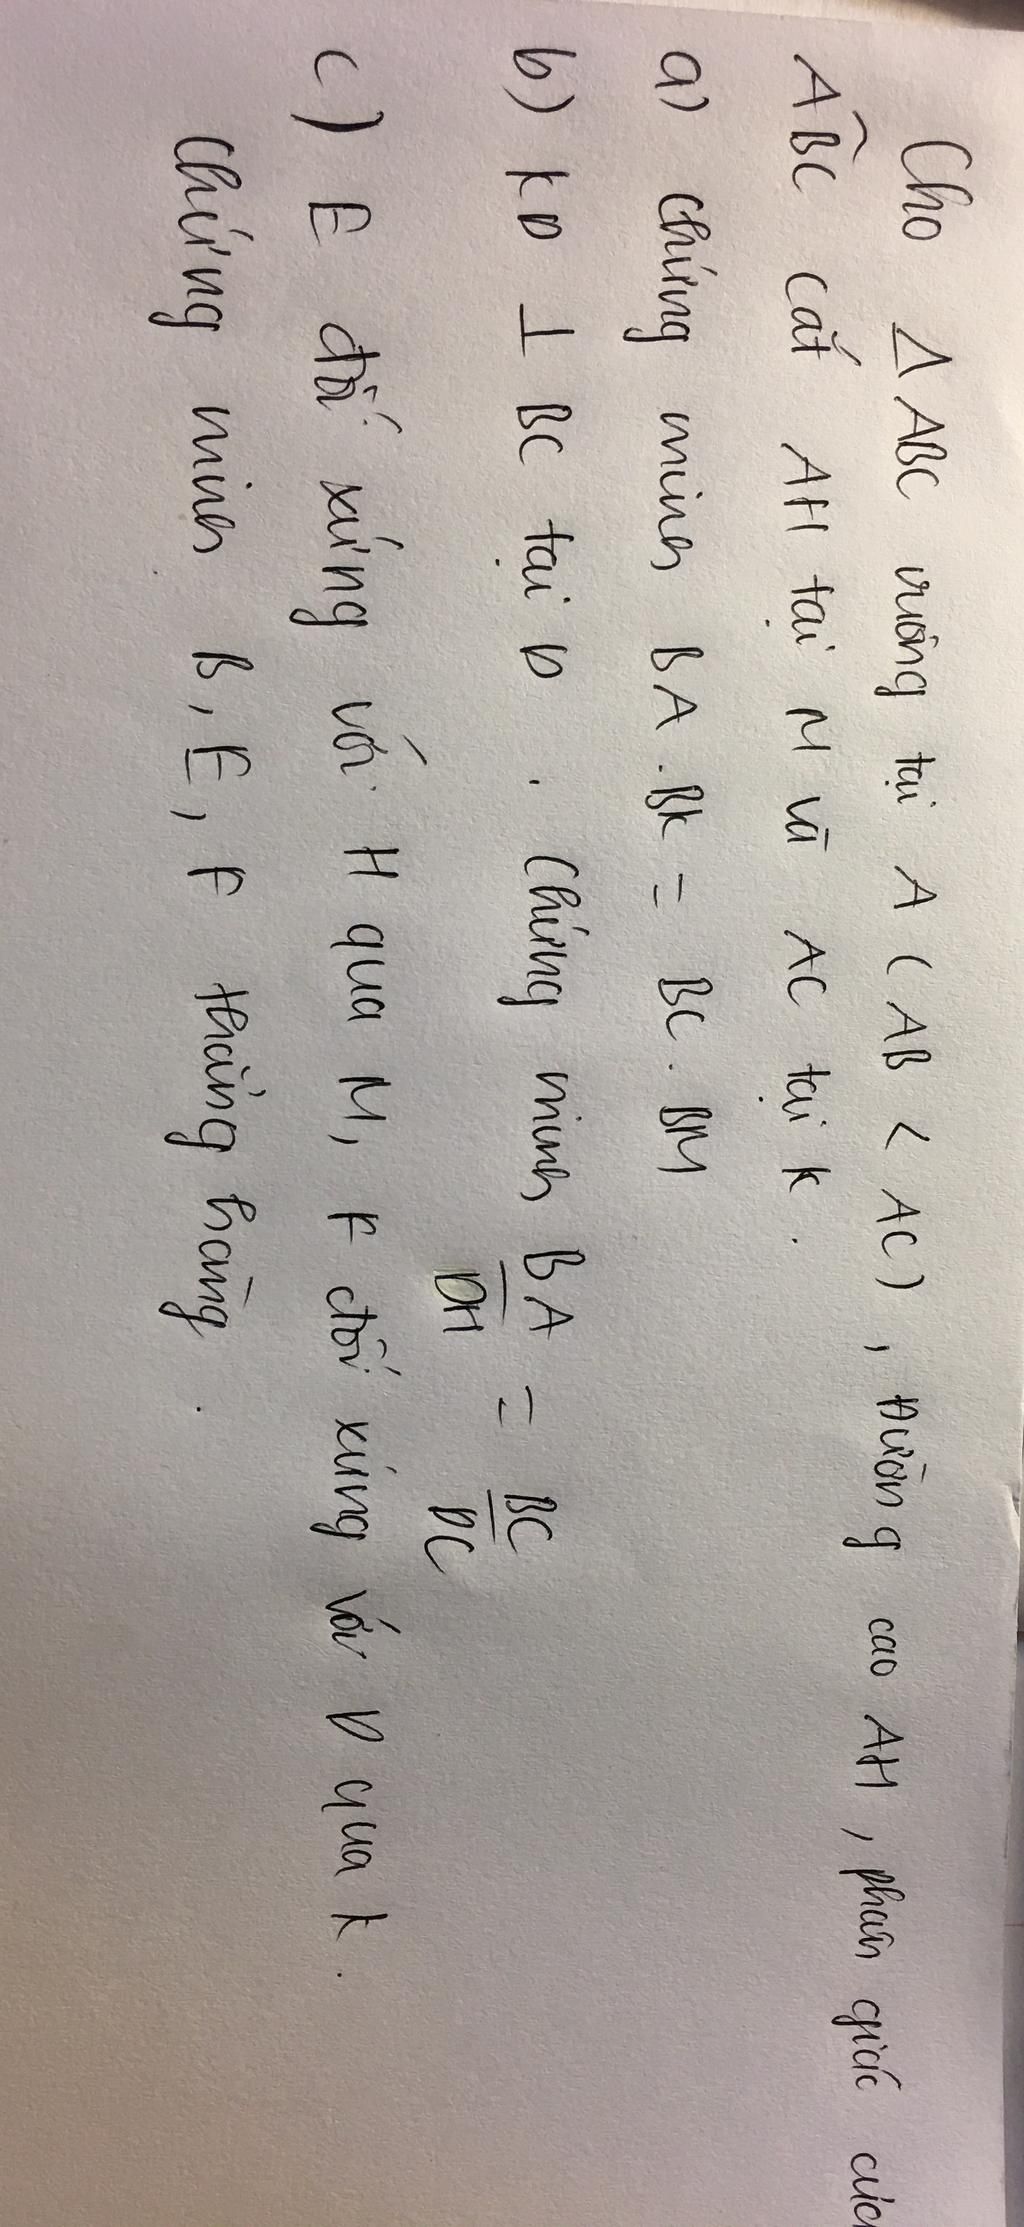 Cho Δ ABC vuông tại A (AB < AC), Đường cao AH, phân giác
ABC cắt AH tại M và AC tại K.
a) Chứng minh BA.BK = BC.BM
b) KD ⊥ BC tại D. Chứng minh BA/DH = BC/DC
c) E đối xứng với H qua M, F đối xứng với D qua K.
Chứng minh B, E, F thẳng hàng.